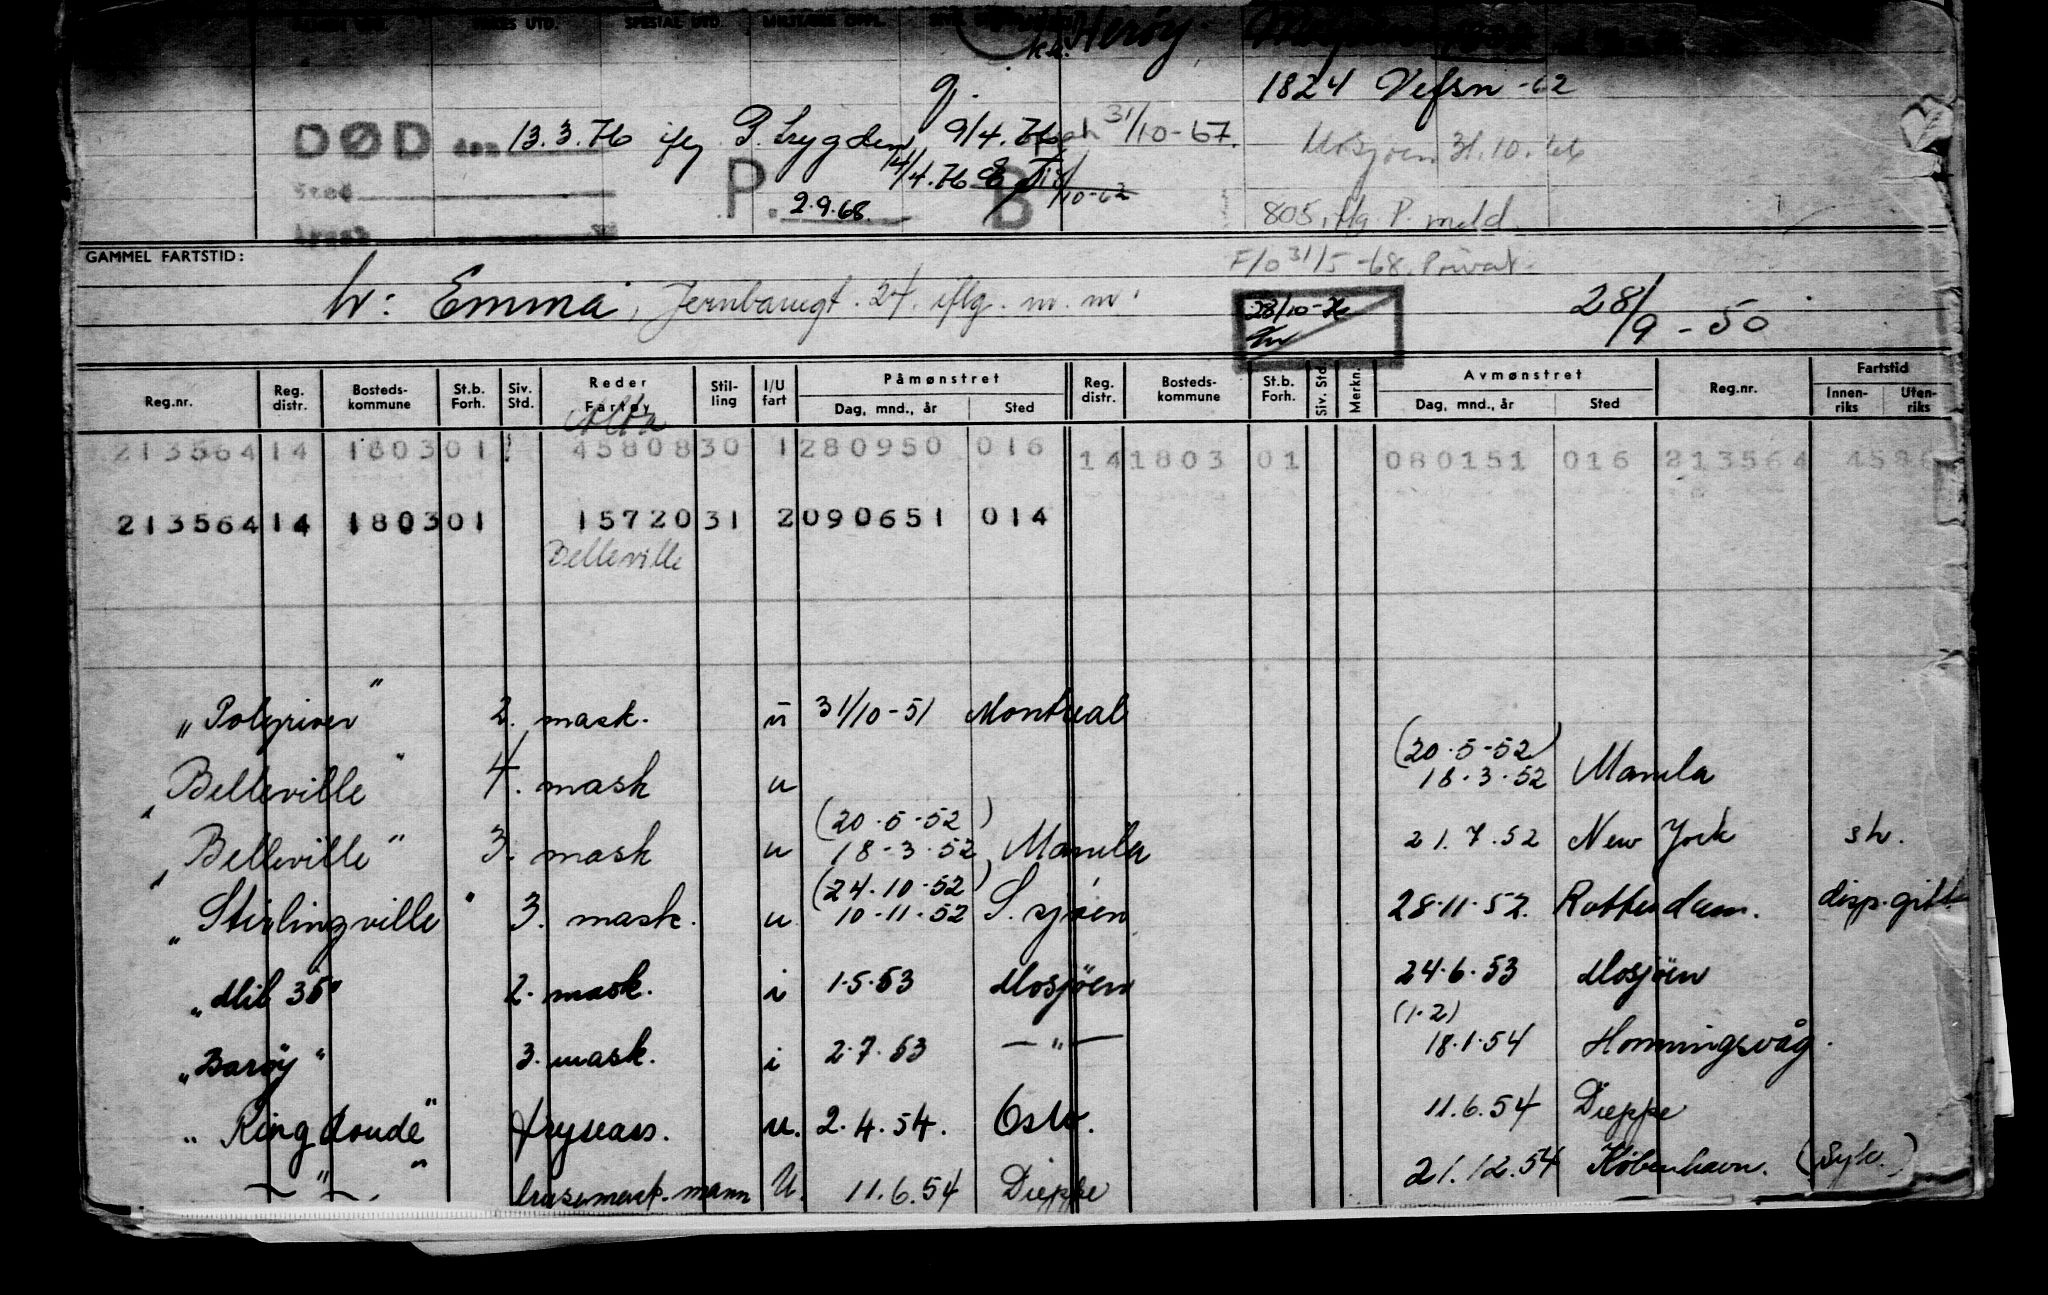 Herøy
1824 Vefsn -62
DØD den 13.3.76 iflg P. trygden 9/4.76 31/10-67.
Mosjøen 31.10.66
Sted 14/4.76
P. 2.9.68 B 10-62
Årsak 805, iflg. P. meld.
GAMMEL FARTSTID: F/o 31/5-68. Privat
h: Emma, Jernbanegt. 24. iflg. m. m. 28/10-76 28/9-50
Reg.nr. Reg. distr. Bosteds-kommune St.b. Forh. Siv. Std. Reder Fartøy Stil-ling I/U fart Påmønstret Dag, mnd., år Sted Reg. distr. Bosteds-kommune St.b. Forh. Siv. Std. Merkn. Avmønstret Dag, mnd., år Sted Reg.nr. Fartstid Innen-riks Uten-riks
213564 14 1803 01 45808 30 1 280950 016 14 1803 01 080151 016 213564
213564 14 1803 01 15720 31 2 090651 014
Belleville
"Polyriver" 2. mask. u 31/10-51 Montreal
(20.5-52)
"Belleville" 4. mask u 18.3.52 Manila
(20.5-52)
"Belleville" 3. mask u 18-3.52 Manila 21.7.52 New York sk.
(24.10.52)
"Stirlingville" 3. mask. u 10-11-52 S. sjøen 28.11.52. Rotterdam. disp. gitt
"Mil 35" 2. mask. i 1.5.53 Mosjöen 24.6.53 Mosjöen
(1.2)
"Barøy" 3. mask. i 2.7.53 — " — 18.1.54 Honningsvåg.
"Ringdoude" fryseass. u. 2.4.54. Oslo. 11.6.54 Dieppe
— " — . mann U. 11.6.54 Dieppe 21.12.54 København. (Syk.)